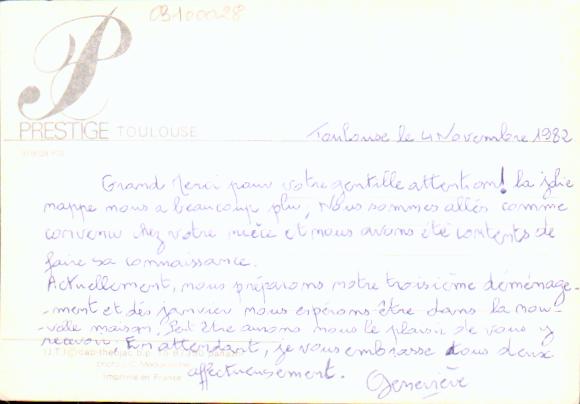 03100028
PRESTIGE TOULOUSE
Toulouse le 4 Novembre 1982
Grand Merci pour votre gentille attention! la jolie
nappe nous a beaucoup plu, Nous sommes allés comme
convenu chez votre nièce et nous avons été contents de
faire sa connaissance.
Actuellement, nous préparons notre troisième déménage-
-ment et dès janvier nous espérons être dans la nou-
-velle maison. Peut être aurons nous le plaisir de vous y
recevoir. En attendant, je vous embrasse tous deux
affectueusement.
Geneviève
Imprimé en France